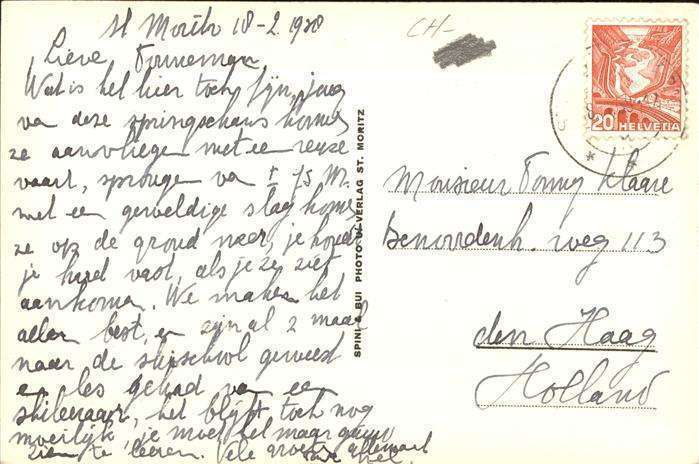 St Moritz 18-2 1938
Lieve Tonneman
Wat is het hier toch fijn, jong
van deze springschans komen
ze aanvliegen met een reuze
vaart, sprongen van ± 75 M.
met een geweldige slag komen
ze op de grond neer, je houdt
je hard vast, als je ze ziet
aankomen. We maken het
allen best, en zijn al 2 maal
naar de skischool geweest
en les gehad van een
skileraar, het blijft toch nog
moeilijk, je moet het maar gauw
zien te leeren. Vele groeten allemaal
CH-
20 HELVETIA
SPINI & BUI PHOTO VERLAG ST. MORITZ
Monsieur Tonny Klaare
Benoordenh. weg 113
den Haag
Holland